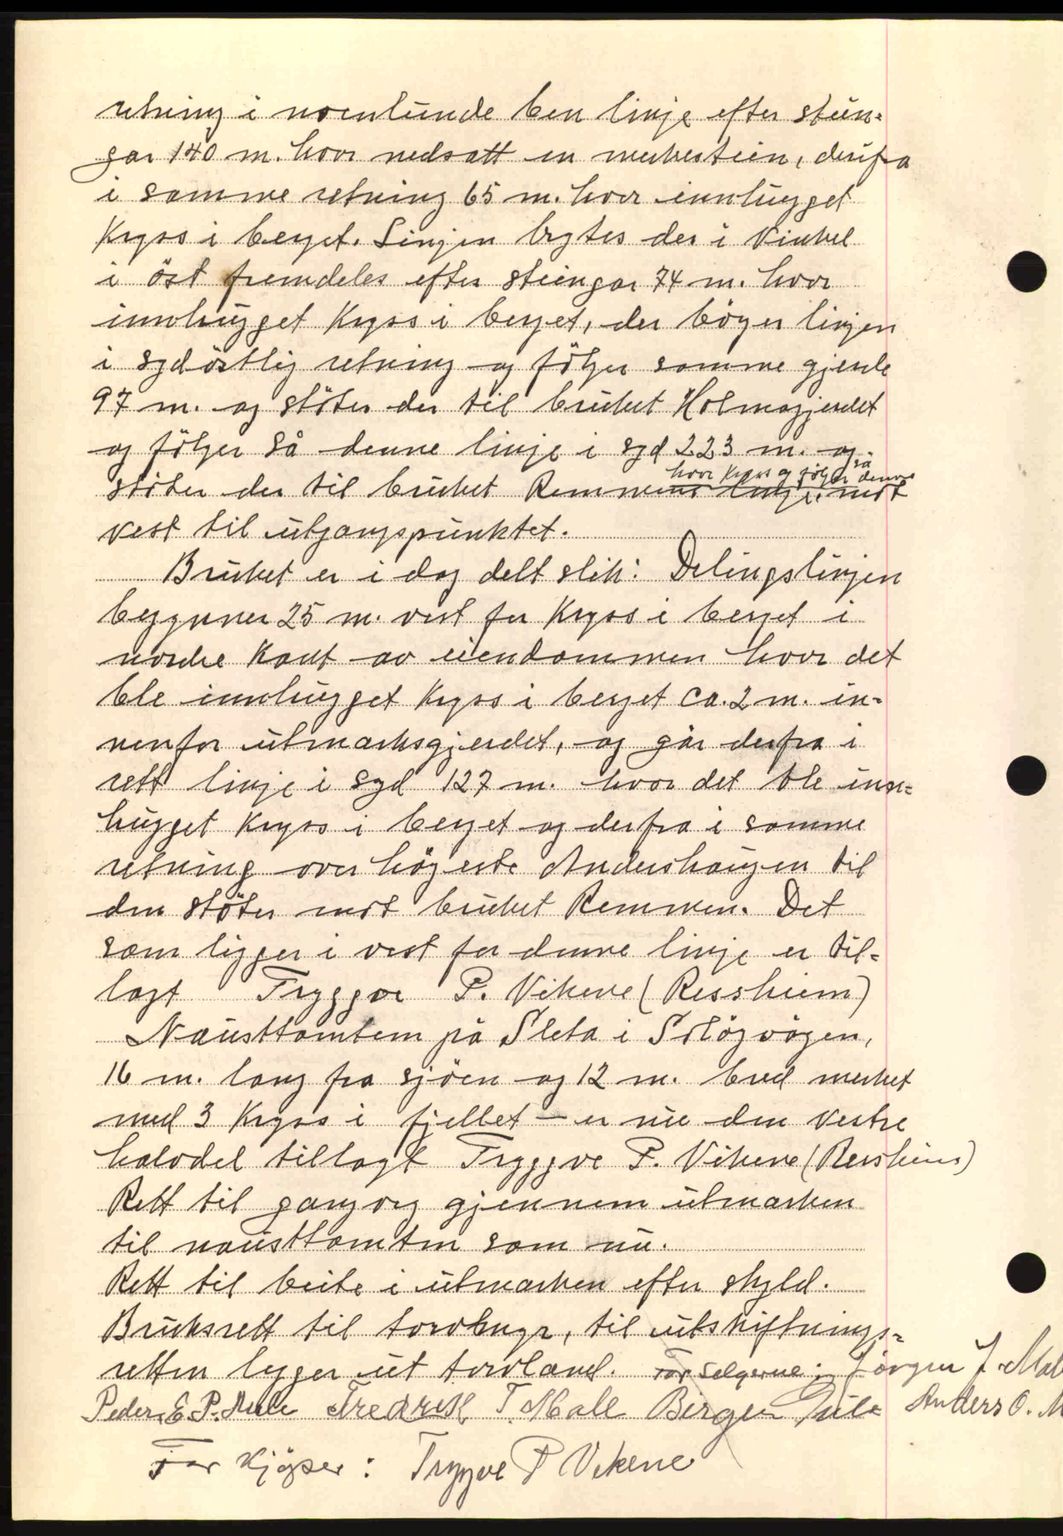 retning i noenlunde ben linje efter stein-
gar 140 m. hvor nedsatt en merkestein, derifra
i samme retning 65 m. hvor innhugget
Kryss i berget. Linjen brytes der i Vinkel
i öst fremdeles efter steingar 74 m. hvor
innhugget Kryss i berget, der böyer linjen
i sydöstlig retning og fölger samme gjerde
97 m. og stöter der til bruket Holmagjerdet
og fölger så denne linje i syd 223 m. og
hvor Kryss og fölger så denne
stöter der til bruket Remmens linje mot
vest til utgangspunktet.
Bruket er i dag delt slik: Delingslinjen
begynner 25 m. vest for Kryss i berget i
nordre Kant av eiendommen hvor det
ble innhugget Kryss i berget ca. 2 m. in-
nenfor utmarksgjerdet, og går derfra i
rett linje i syd 127 m. hvor det ble inn-
hugget Kryss i berget og derfra i samme
retning over högeste Andershaugen til
den stöter mot bruket Remmen. Det
som ligger i vest for denne linje er til-
lagt Tryggve P. Vikene (Ressheim)
Nausttomten på Sleta i Sölögvågen,
16 m. lang fra sjöen og 12 m. bred merket
med 3 Kryss i fjellet — er nu den vestre
halvdel tillagt Tryggve P. Vikene (Ressheim)
Rett til gangveg gjennem utmarken
til nausttomten som nu.
Rett til beite i utmarken efter skyld.
Bruksrett til torvmyr, til utskiftnings-
retten legger ut torvland. For Selgerne: Jörgen J. Mal
Peder E. P. Mele Fredrik T. Mall Berger Anders O. M
For Kjöper: Tryggve P Vikene